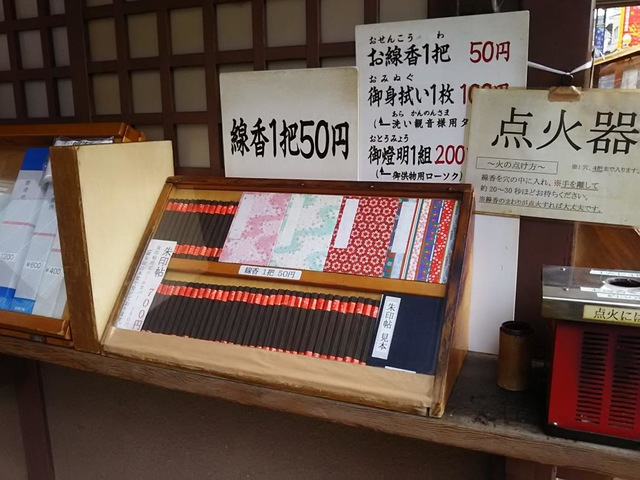 おせんこう わ
お線香1把 50円
おみぬぐ
御身拭い1枚 100円
あら かんのんさま
洗い観音様用タ
おとうみょう
御燈明1組 200
御供物用ローソク
線香1把50円
点火器
～火の点け方～
線香を穴の中に入れ、※手を離して
約20～30秒ほどお待ちください。
※線香のまわりが点火すれば大丈夫です。
線香 1把 50円
朱印帖
700円
朱印帖 見本
点火には
¥600
¥400